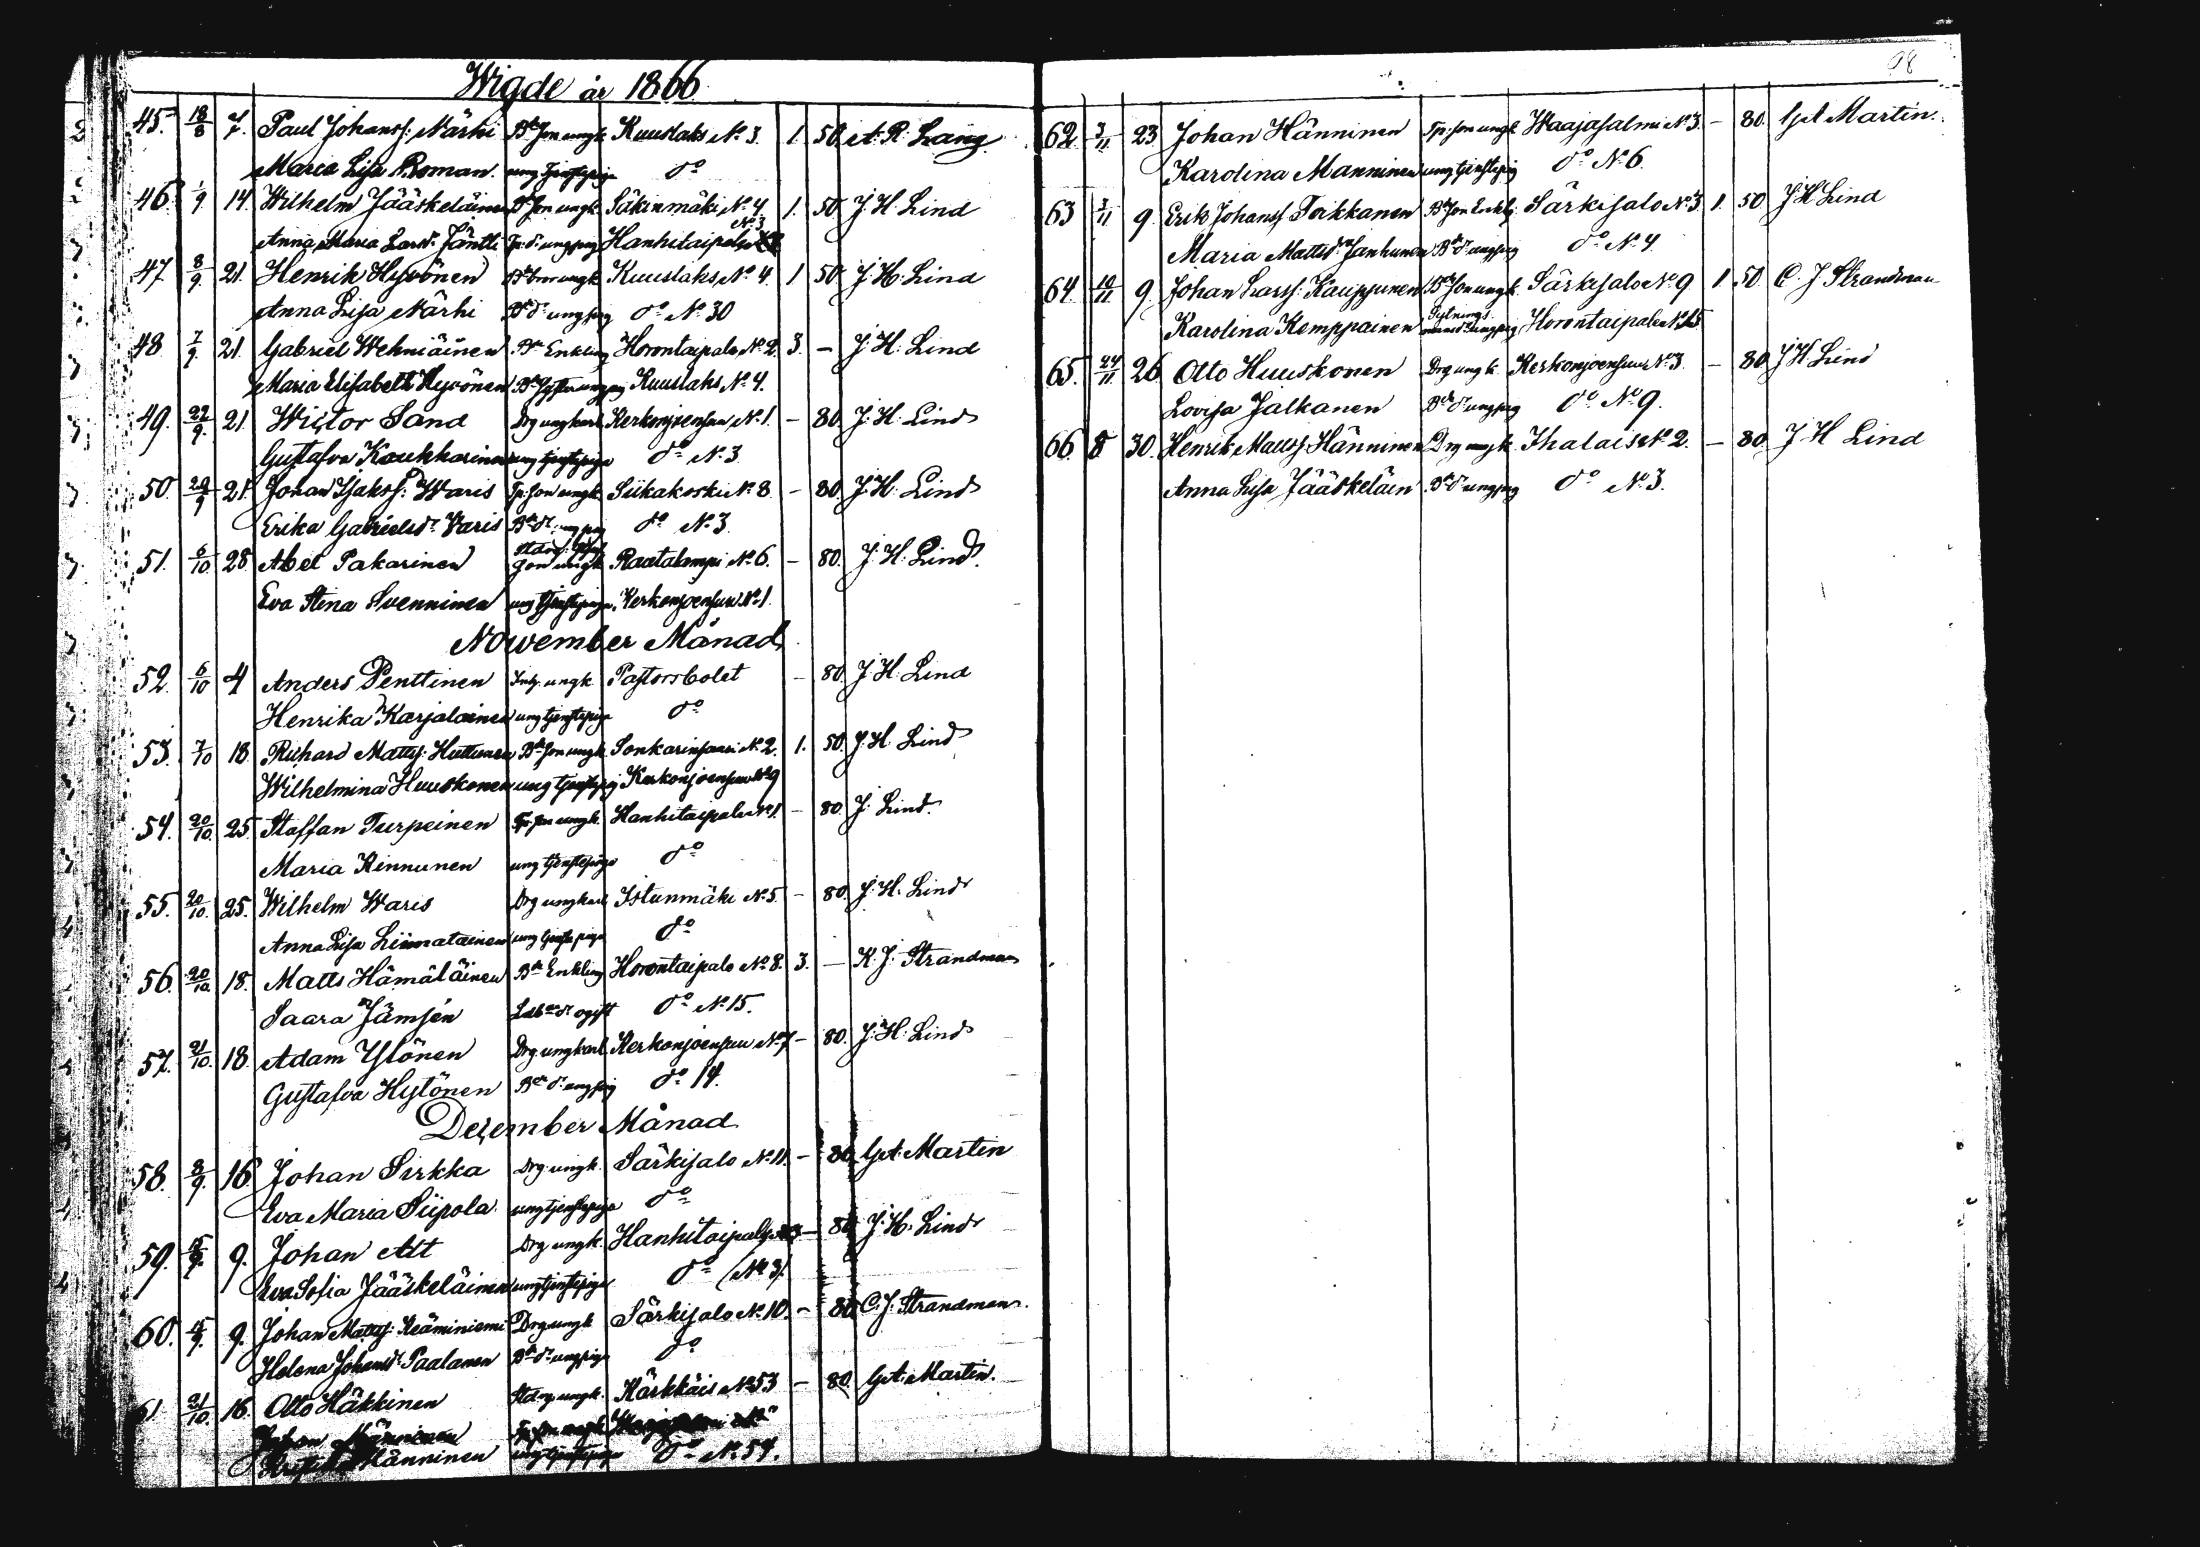 Wigde år 1866.
45. 18/8 7. Paul Johanss: Närhi Bde Son ungk. Kuuslaks No 3. 1. 50 A. R. Lang.
Maria Lisa Roman. ung tjenstepiga do
46. 1/9. 14. Wilhelm Jääskeläinen Bde Son ungk. Säkinmäki No 4 1. 50 J. H. Lind
Anna Maria Larsdr Jäntti Tp. dr ungpig Hanhitaipale No 3
47. 8/9. 21. Henrik Hyvönen Bde Son ungk. Kuuslaks No 4. 1 50 J. H. Lind
Anna Lisa Närhi Bde dr ungpig do No 30
48 7/9. 21. Gabriel Wehniäinen Bde Enkling Horontaipale No 2. 3. – J. H. Lind
Maria Elisabeth Hyvönen Bde ungpig Kuuslaks No 4.
49. 22/9. 21. Wictor Sand Drg ungkarl Kerkonjoensuu No 1. – 80. J. H. Lind
Gustafva Koukkarinen ung tjenstepiga do No 3
50. 29/9 21. Johan Isakss: Waris Tp. Son ungk. Siikakoski No 8 – 80. J. H. Lind
Erika Gabrielsdr Waris Bde dr ungpig do No 3.
51. 6/10. 28. Abel Pakarinen Son ungk Raatalampi No 6. – 80. J. H. Lind.
Eva Stina Svenninen ung tjenstepiga Kerkonjoensuu No 1.
Nowember Månad
52. 6/10 4 Anders Penttinen Inh. ungk. Pastorsbolet – 80. J. H. Lind
Henrika Karjalainen ung tjenstepiga do
53. 7/10 18. Richard Mattss: Huttunen Bde Son ungk. Sonkarinsaari No 2. 1. 50. J. H. Lind
Wilhelmina Huuskonen ung tjenstepig Kerkonjoensuu No 9
54. 20/10. 25. Staffan Turpeinen Tp. Son ungk. Hanhitaipale No 1. – 80 J. Lind.
Maria Kinnunen ung tjenstepiga do
55. 20/10. 25. Wilhelm Waris Drg ungkarl Istunmäki No 5. – 80. J. H. Lind
Anna Lisa Liimatainen ung tjenstepiga do
56. 20/10. 18. Matts Hämäläinen Bde Enkling Horontaipale No 8. 3. – K. J. Strandman
Saara Jämsén dr ogift do No 15.
57. 21/10. 18. Adam Ylönen Drg ungkarl Kerkonjoensuu No 7 – 80. J. H. Lind
Gustafva Hytönen Bde dr ungpig do 14.
Dezember Månad
58. 8/9. 16. Johan Sirkka Drg ungk. Särkisalo No 11. – 80 G. A. Martin
Eva Maria Siipola. ung tjenstepiga do
59. 9. Johan Alt Drg ungk. Hanhitaipale – 80 J. H. Lind
Eva Sofia Jääskeläinen ung tjenstepiga do (No 3).
60. 9. Johan Mattss: Keäminiemi Drg ungk Särkisalo No 10. – 80 C. J. Strandman.
Helena Johansdr Paalanen Bde dr ungpiga do
61 21/10. 16. Otto Häkkinen Stdrg. ungk. Kärkkäis No 53 – 80. G. A. Martin.
Johan Hänninen
Hänninen ung tjenstepiga do No 54.
98
62 3/11 23. Johan Hänninen Tp. Son ungk Waajasalmi No 3. – 80. G. A. Martin.
Karolina Manninen ung tjenstepig do No 6.
63 3/11 9. Erik Johanss Toikkanen Bde Son Enklg. Särkisalo No 3 1. 50 J H Lind
Maria Mattsdr Janhunen Bde dr ungpig do No 4
64. 10/11 9. Johan Larss: Kauppinen Bde Son ungk. Särkisalo No 9 1 50 C. J Strandman
Karolina Kemppainen ungpig Horontaipale No 15
65. 24/11 26 Otto Huuskonen Drg ungk. Kerkonjoensuu No 3. – 80. J H. Lind
Lovisa Jalkanen Bde dr ungpig do No 9.
66. 8 30. Henrik Mattss Hänninen Drg ungk. Ihalais No 2. – 80. J H Lind
Anna Lisa Jääskeläin Bde dr ungpig do No 3.